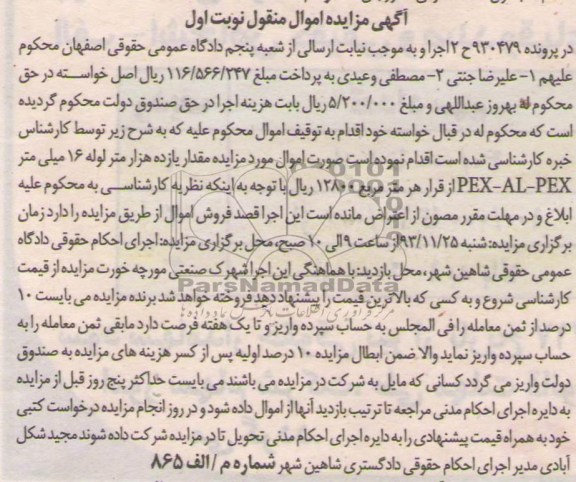 آگهی مزایده اموال منقول نوبت اول
در پرونده ۹۳۰۴۷۹ح ۲اجرا و به موجب نیابت ارسالی از شعبه پنجم دادگاه عمومی حقوقی اصفهان محکوم
علیهم ۱- علیرضا جنتی ۲- مصطفی وعیدی به پرداخت مبلغ ۱۱۶/۵۶۶/۲۴۷ ریال اصل خواسته در حق
محکوم له بهروز عبداللهی و مبلغ ۵/۲۰۰/۰۰۰ ریال بابت هزینه اجرا در حق صندوق دولت محکوم گردیده
است که محکوم له در قبال خواسته خود اقدام به توقیف اموال محکوم علیه که به شرح زیر توسط کارشناس
خبره کارشناسی شده است اقدام نموده است صورت اموال مورد مزایده مقدار یازده هزار متر لوله ۱۶ میلی متر
PEX-AL-PEX از قرار هر متر مربع ۱۲۸۰۰ ریال با توجه به اینکه نظریه کارشناسی به محکوم علیه
ابلاغ و در مهلت مقرر مصون از اعتراض مانده است این اجرا قصد فروش اموال از طریق مزایده را دارد زمان
برگزاری مزایده: شنبه ۹۳/۱۱/۲۵ از ساعت ۹ الی ۱۰ صبح، محل برگزاری مزایده: اجرای احکام حقوقی دادگاه
عمومی حقوقی شاهین شهر، محل بازدید: با هماهنگی این اجرا شهرک صنعتی مورچه خورت مزایده از قیمت
ParsNamadData
کارشناسی شروع و به کسی که بالاترین قیمت را پیشنهاد دهد فروخته خواهد شد برنده مزایده می بایست ۱۰
درصد از ثمن معامله را فی المجلس به حساب سپرده واریز و تا یک هفته فرصت دارد مابقی ثمن معامله را به
حساب سپرده واریز نماید والا ضمن ابطال مزایده ۱۰ درصد اولیه پس از کسر هزینه های مزایده به صندوق
دولت واریز می گردد کسانی که مایل به شرکت در مزایده می باشند می بایست حداکثر پنج روز قبل از مزایده
به دایره اجرای احکام مدنی مراجعه تا ترتیب بازدید آنها از اموال داده شود و در روز انجام مزایده درخواست کتبی
خود به همراه قیمت پیشنهادی را به دایره اجرای احکام مدنی تحویل تا در مزایده شرکت داده شوند مجید شکل
آبادی مدیر اجرای احکام حقوقی دادگستری شاهین شهر شماره م/الف ۸۶۵